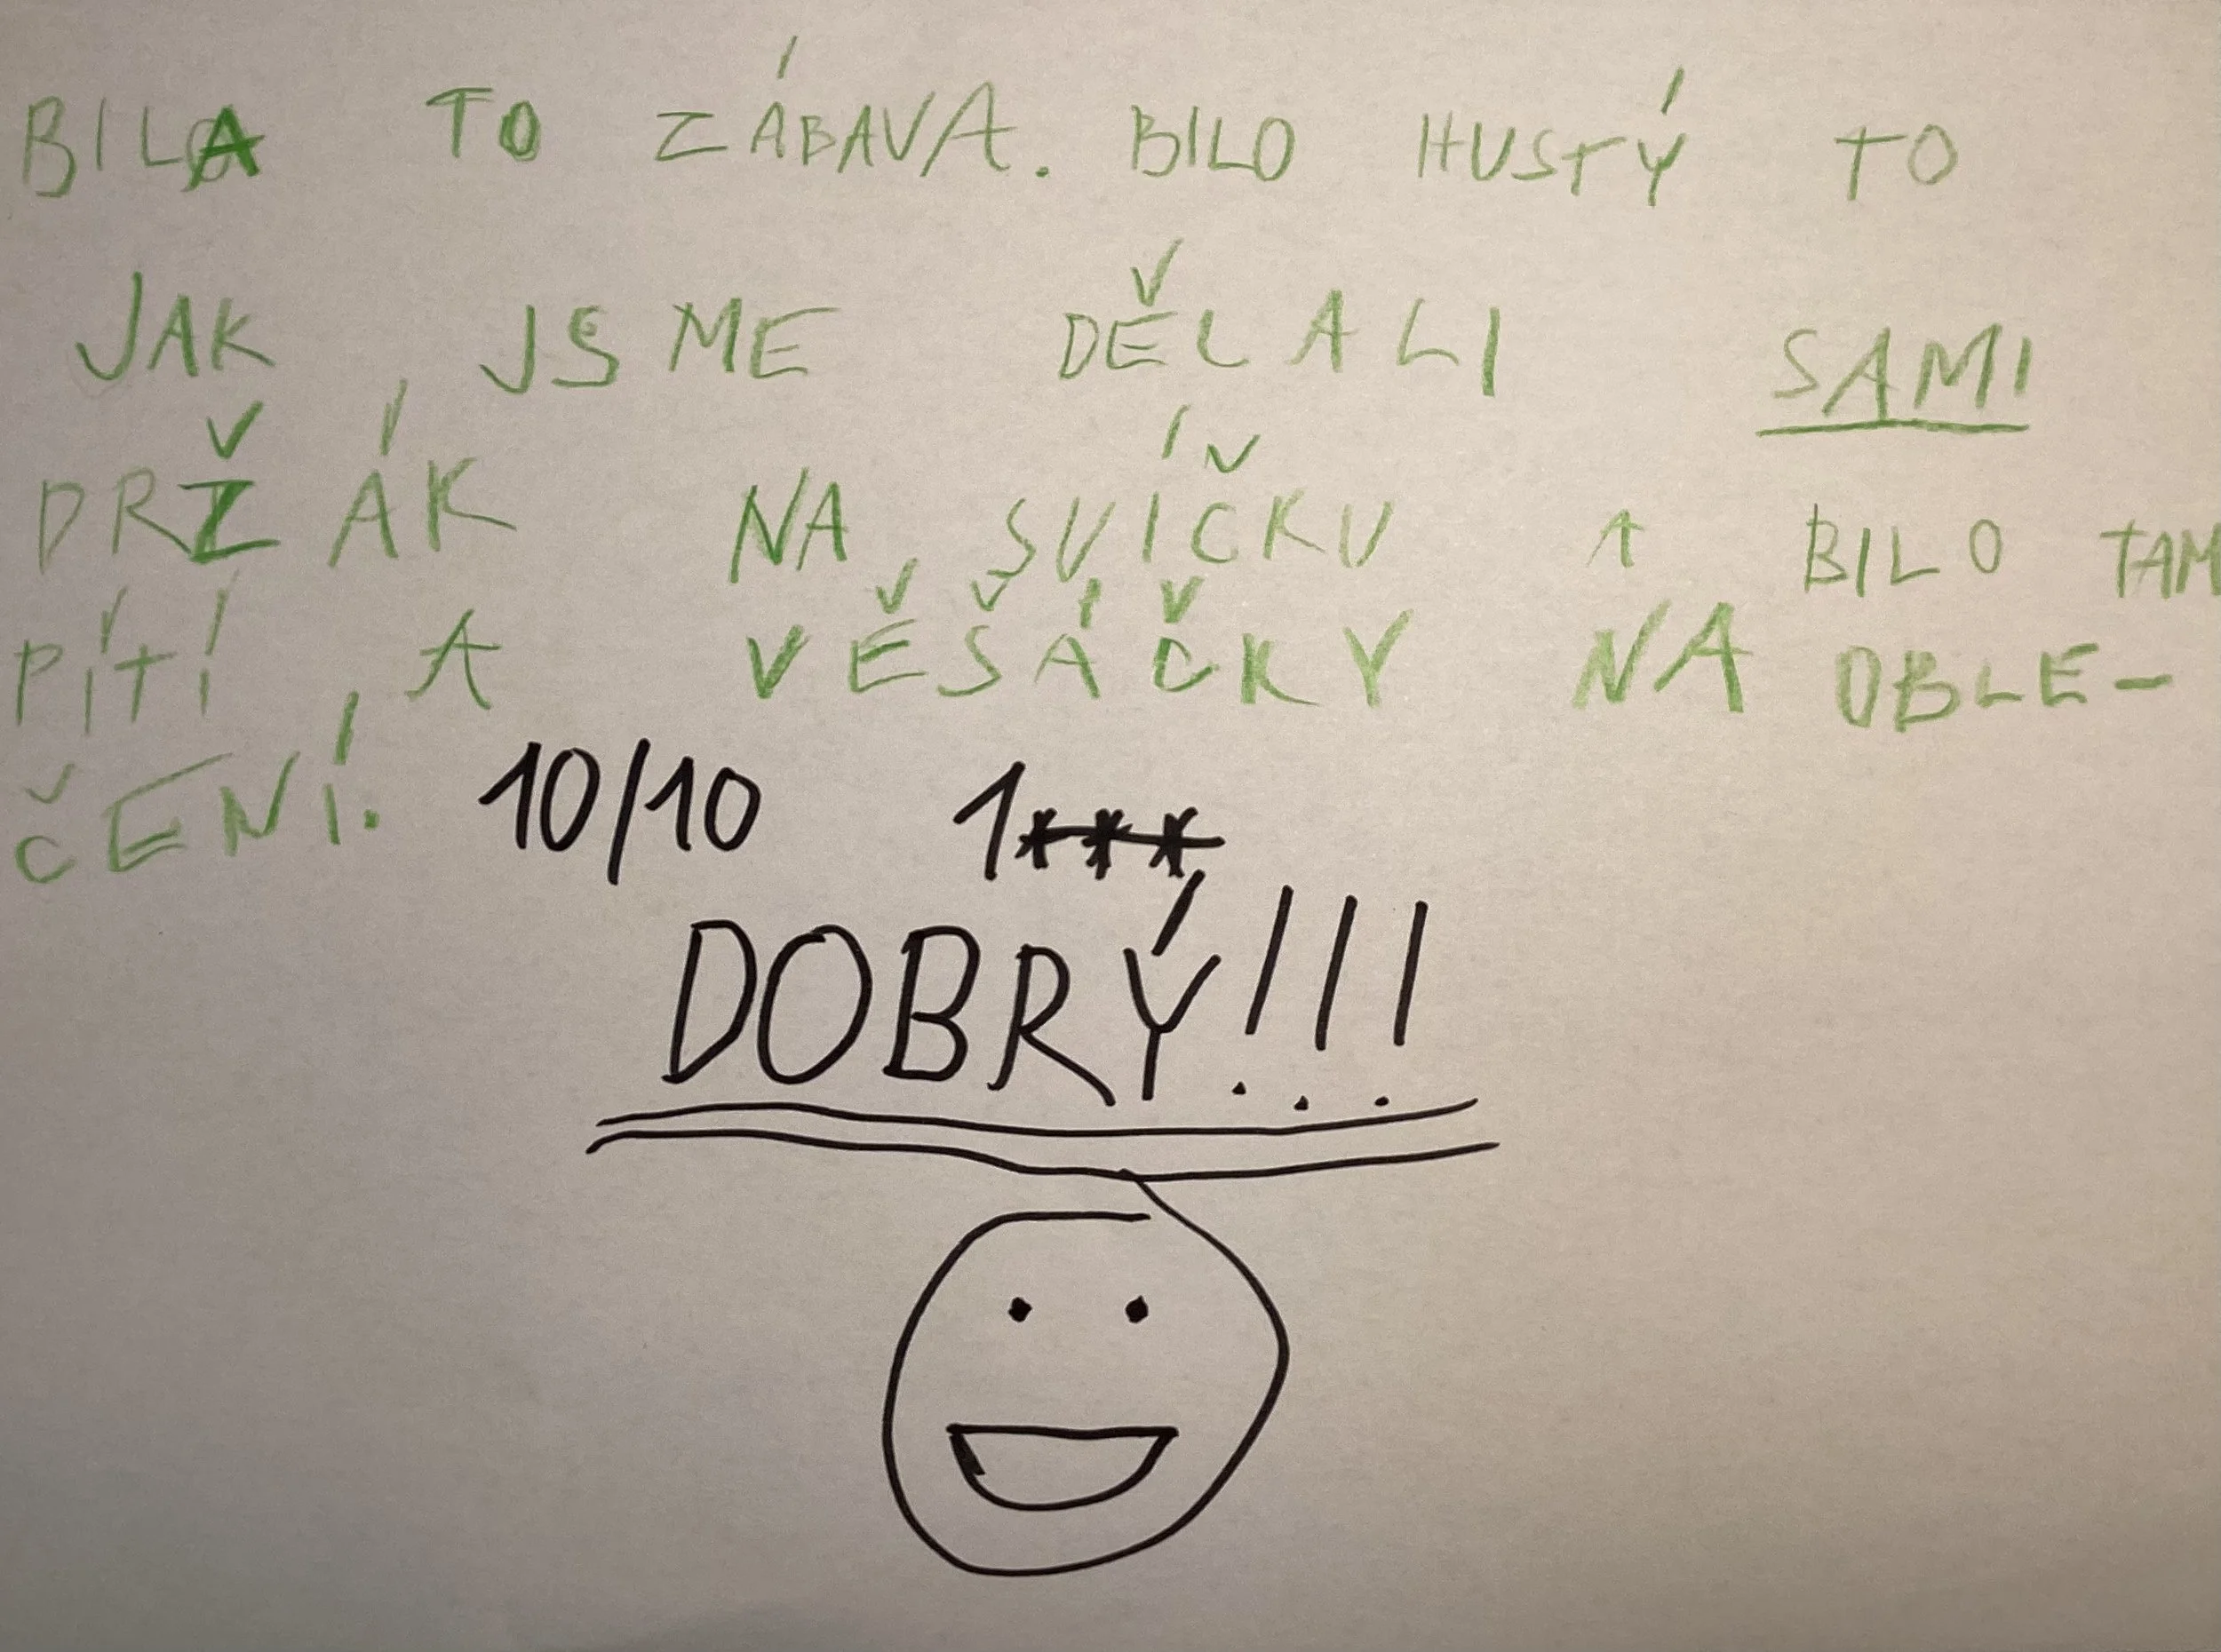 BILA TO ZÁBAVA. BILO HUSTÝ TO
JAK JSME DĚLALI SAMI
DRŽÁK NA SVÍČKU A BILO TAM
PÍTÍ, A VĚŠÁČKY NA OBLE-
ČENÍ. 10/10 1***
DOBRÝ!!!